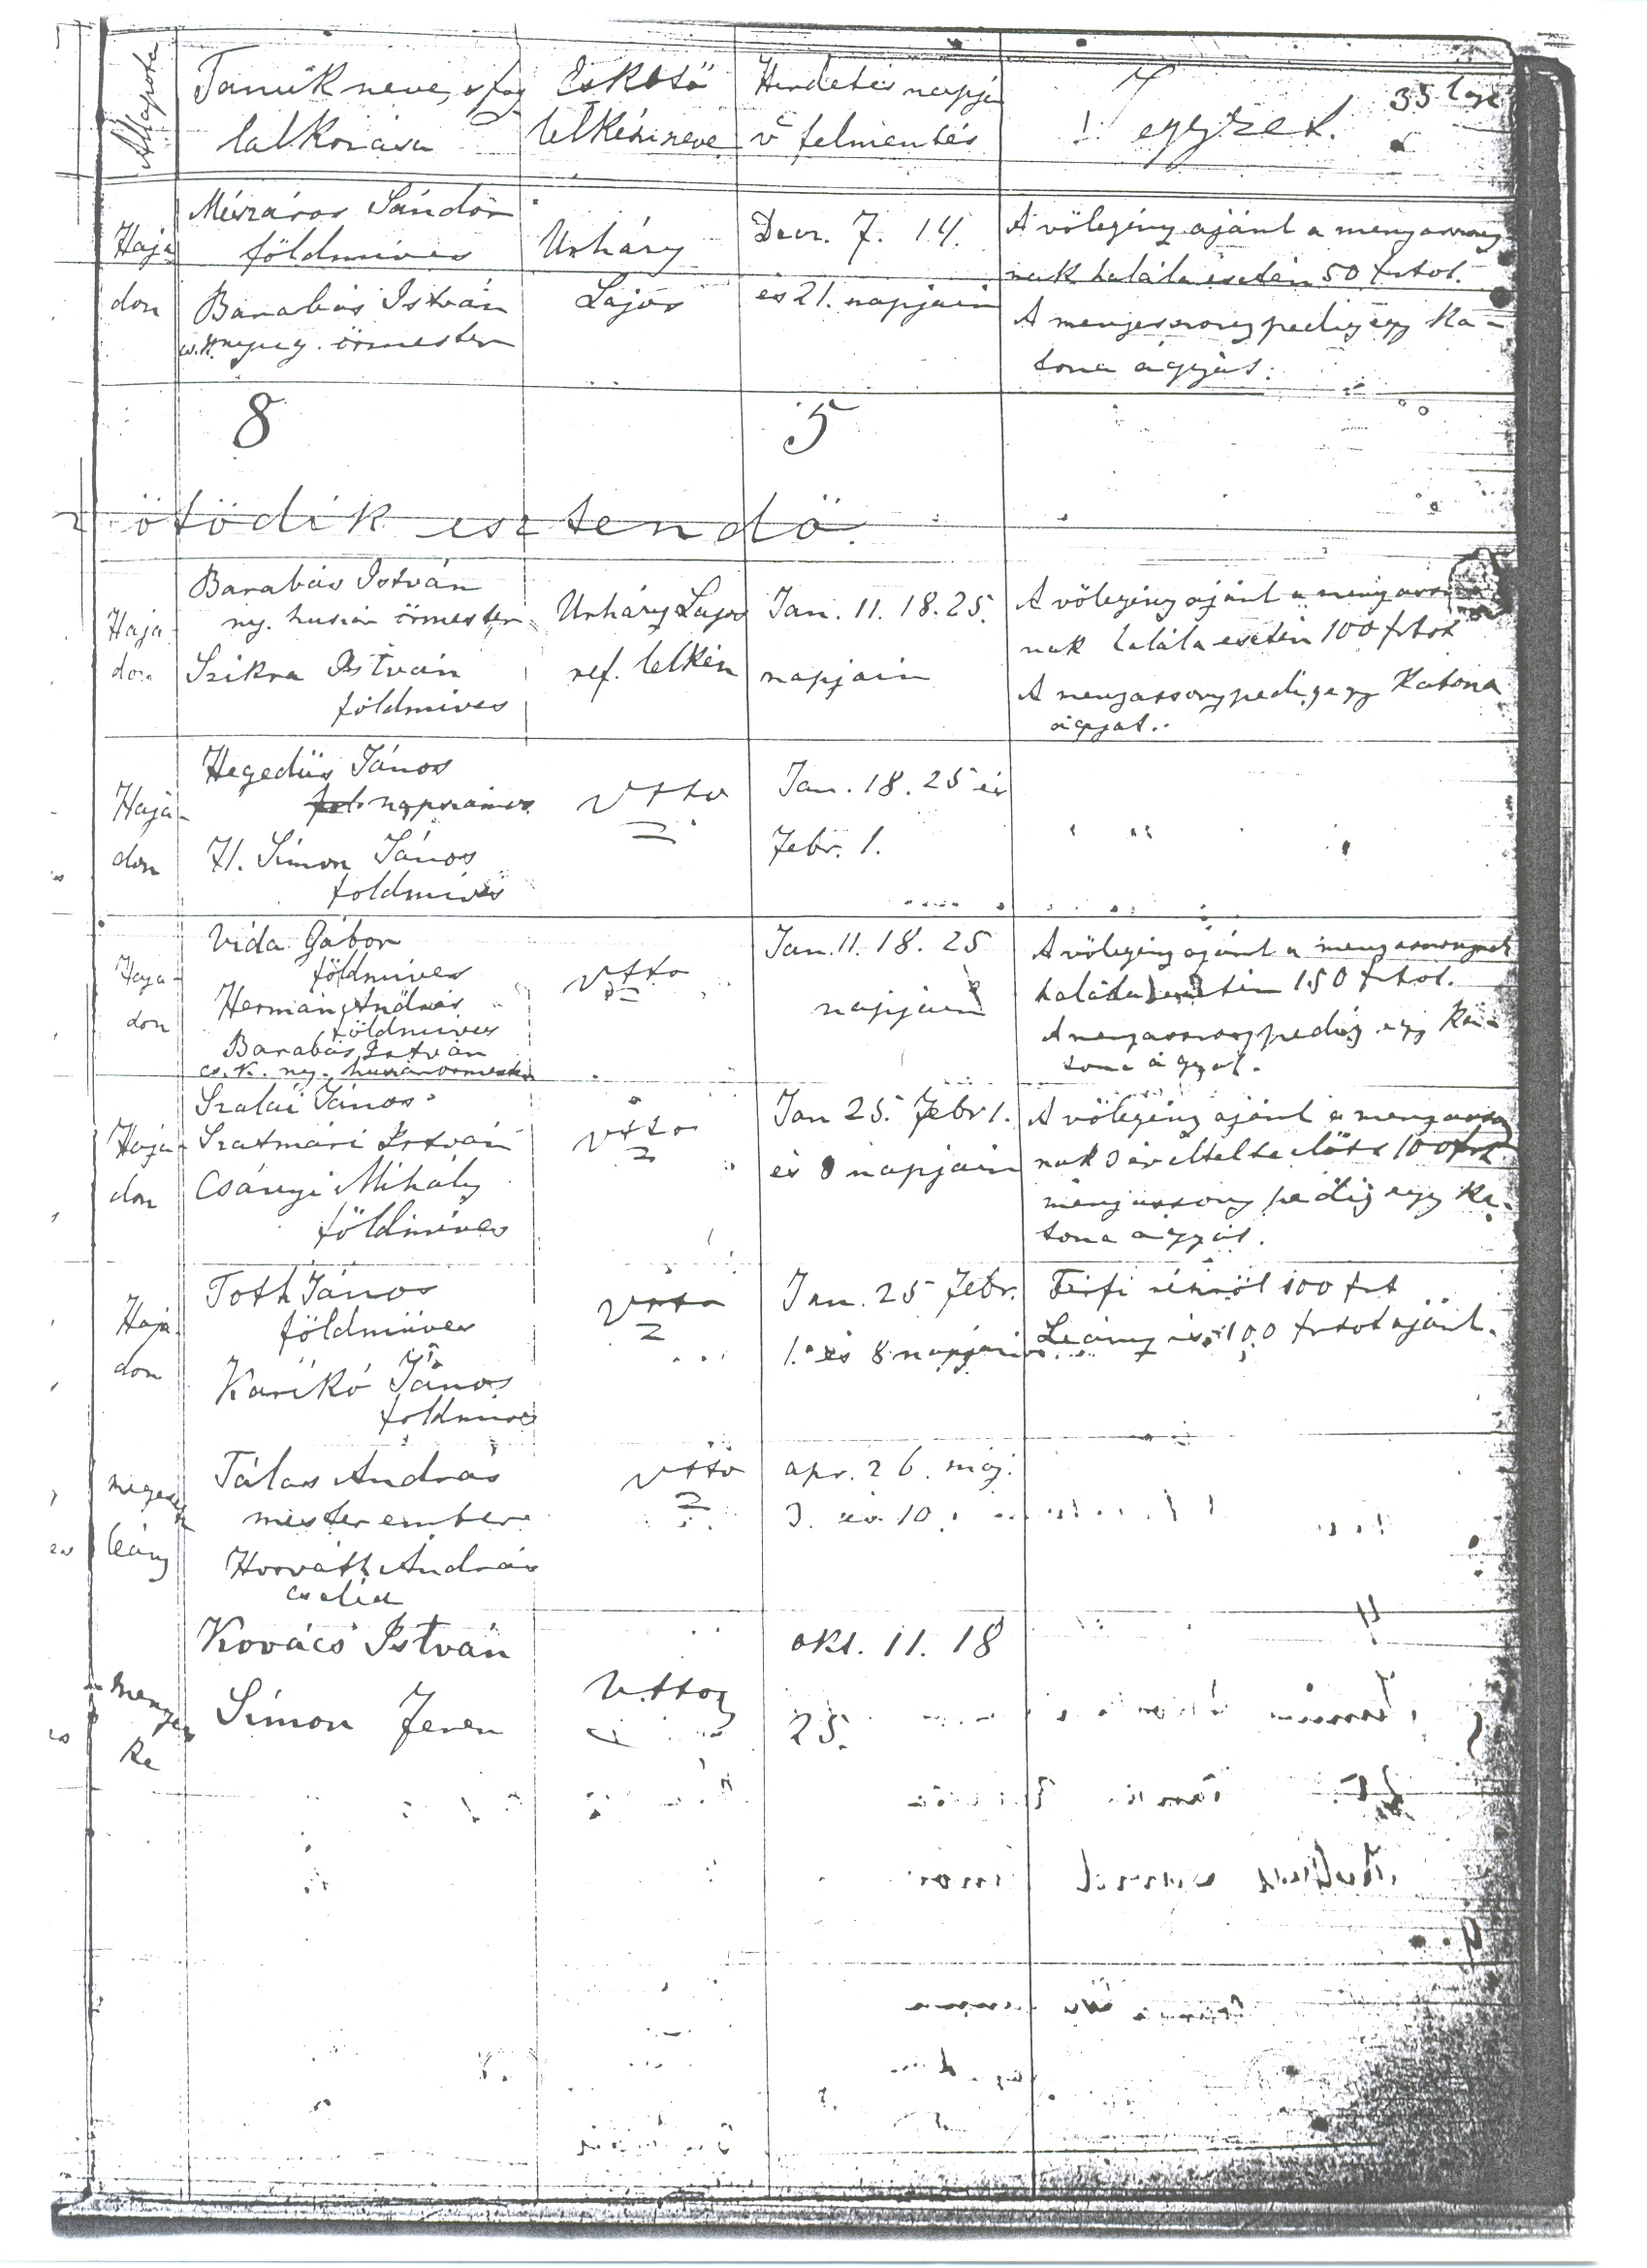 Állapota
Tanúk neve, s fog
lalkozása
Esketö
lelkész neve
Hirdetés napja
v felmentés
Jegyzet.
35 lap
Haja
don
Mészáros Sándor
földmives
Barabás István
nyug. örmester
Urháry
Lajos
Decr. 7. 14.
és 21. napjain
A völegény ajánl a menyasszony
nak halála esetén 50 frtot.
A menyasszony pedig egy Ka-
tona ágyat.
8
5
ötödik esztendö.
Haja
don
Barabás István
ny. huszár örmester
Szikra István
földmives
Urháry Lajos
ref. lelkész
Jan. 11. 18. 25.
napjain
A völegény ajánl a menyasszony
nak halála esetén 100 frtot
A menyasszony pedig egy Katona
ágyat.
Hajá-
don
Hegedüs János
napszámos
H. Simon János
földmives
Jan. 18. 25 és
Febr. 1.
" "
Haja-
don
Vida Gábor
földmives
Hermán András
földmives
Barabás István
cs. k. ny. huszárörmester
Jan. 11. 18. 25
napjain
A völegény ajánl a menyasszonynak
halála esetén 150 frtot.
A menyasszony pedig egy Ka-
tona ágyat.
Haja-
don
Szalai János
Szatmári István
Csányi Mihály
földmives
Jan 25. Febr 1.
és 8 napjain
A völegény ajánl a menyasszony
nak 3 év eltelte elött 100 frt
menyasszony pedig egy Ka-
tona ágyat.
Haja
don
Toth János
földmives
Karikó János
földmives
Jan. 25 Febr.
1. és 8 napjain
Férfi részröl 100 frt
Leány is 100 frtot ajánl.
megesett
leány
Tálas András
mester ember
Horváth András
cseléd
apr. 26. máj.
3. és 10.
menyecs
ke
Kovács István
Simon Feren
okt. 11. 18
25.